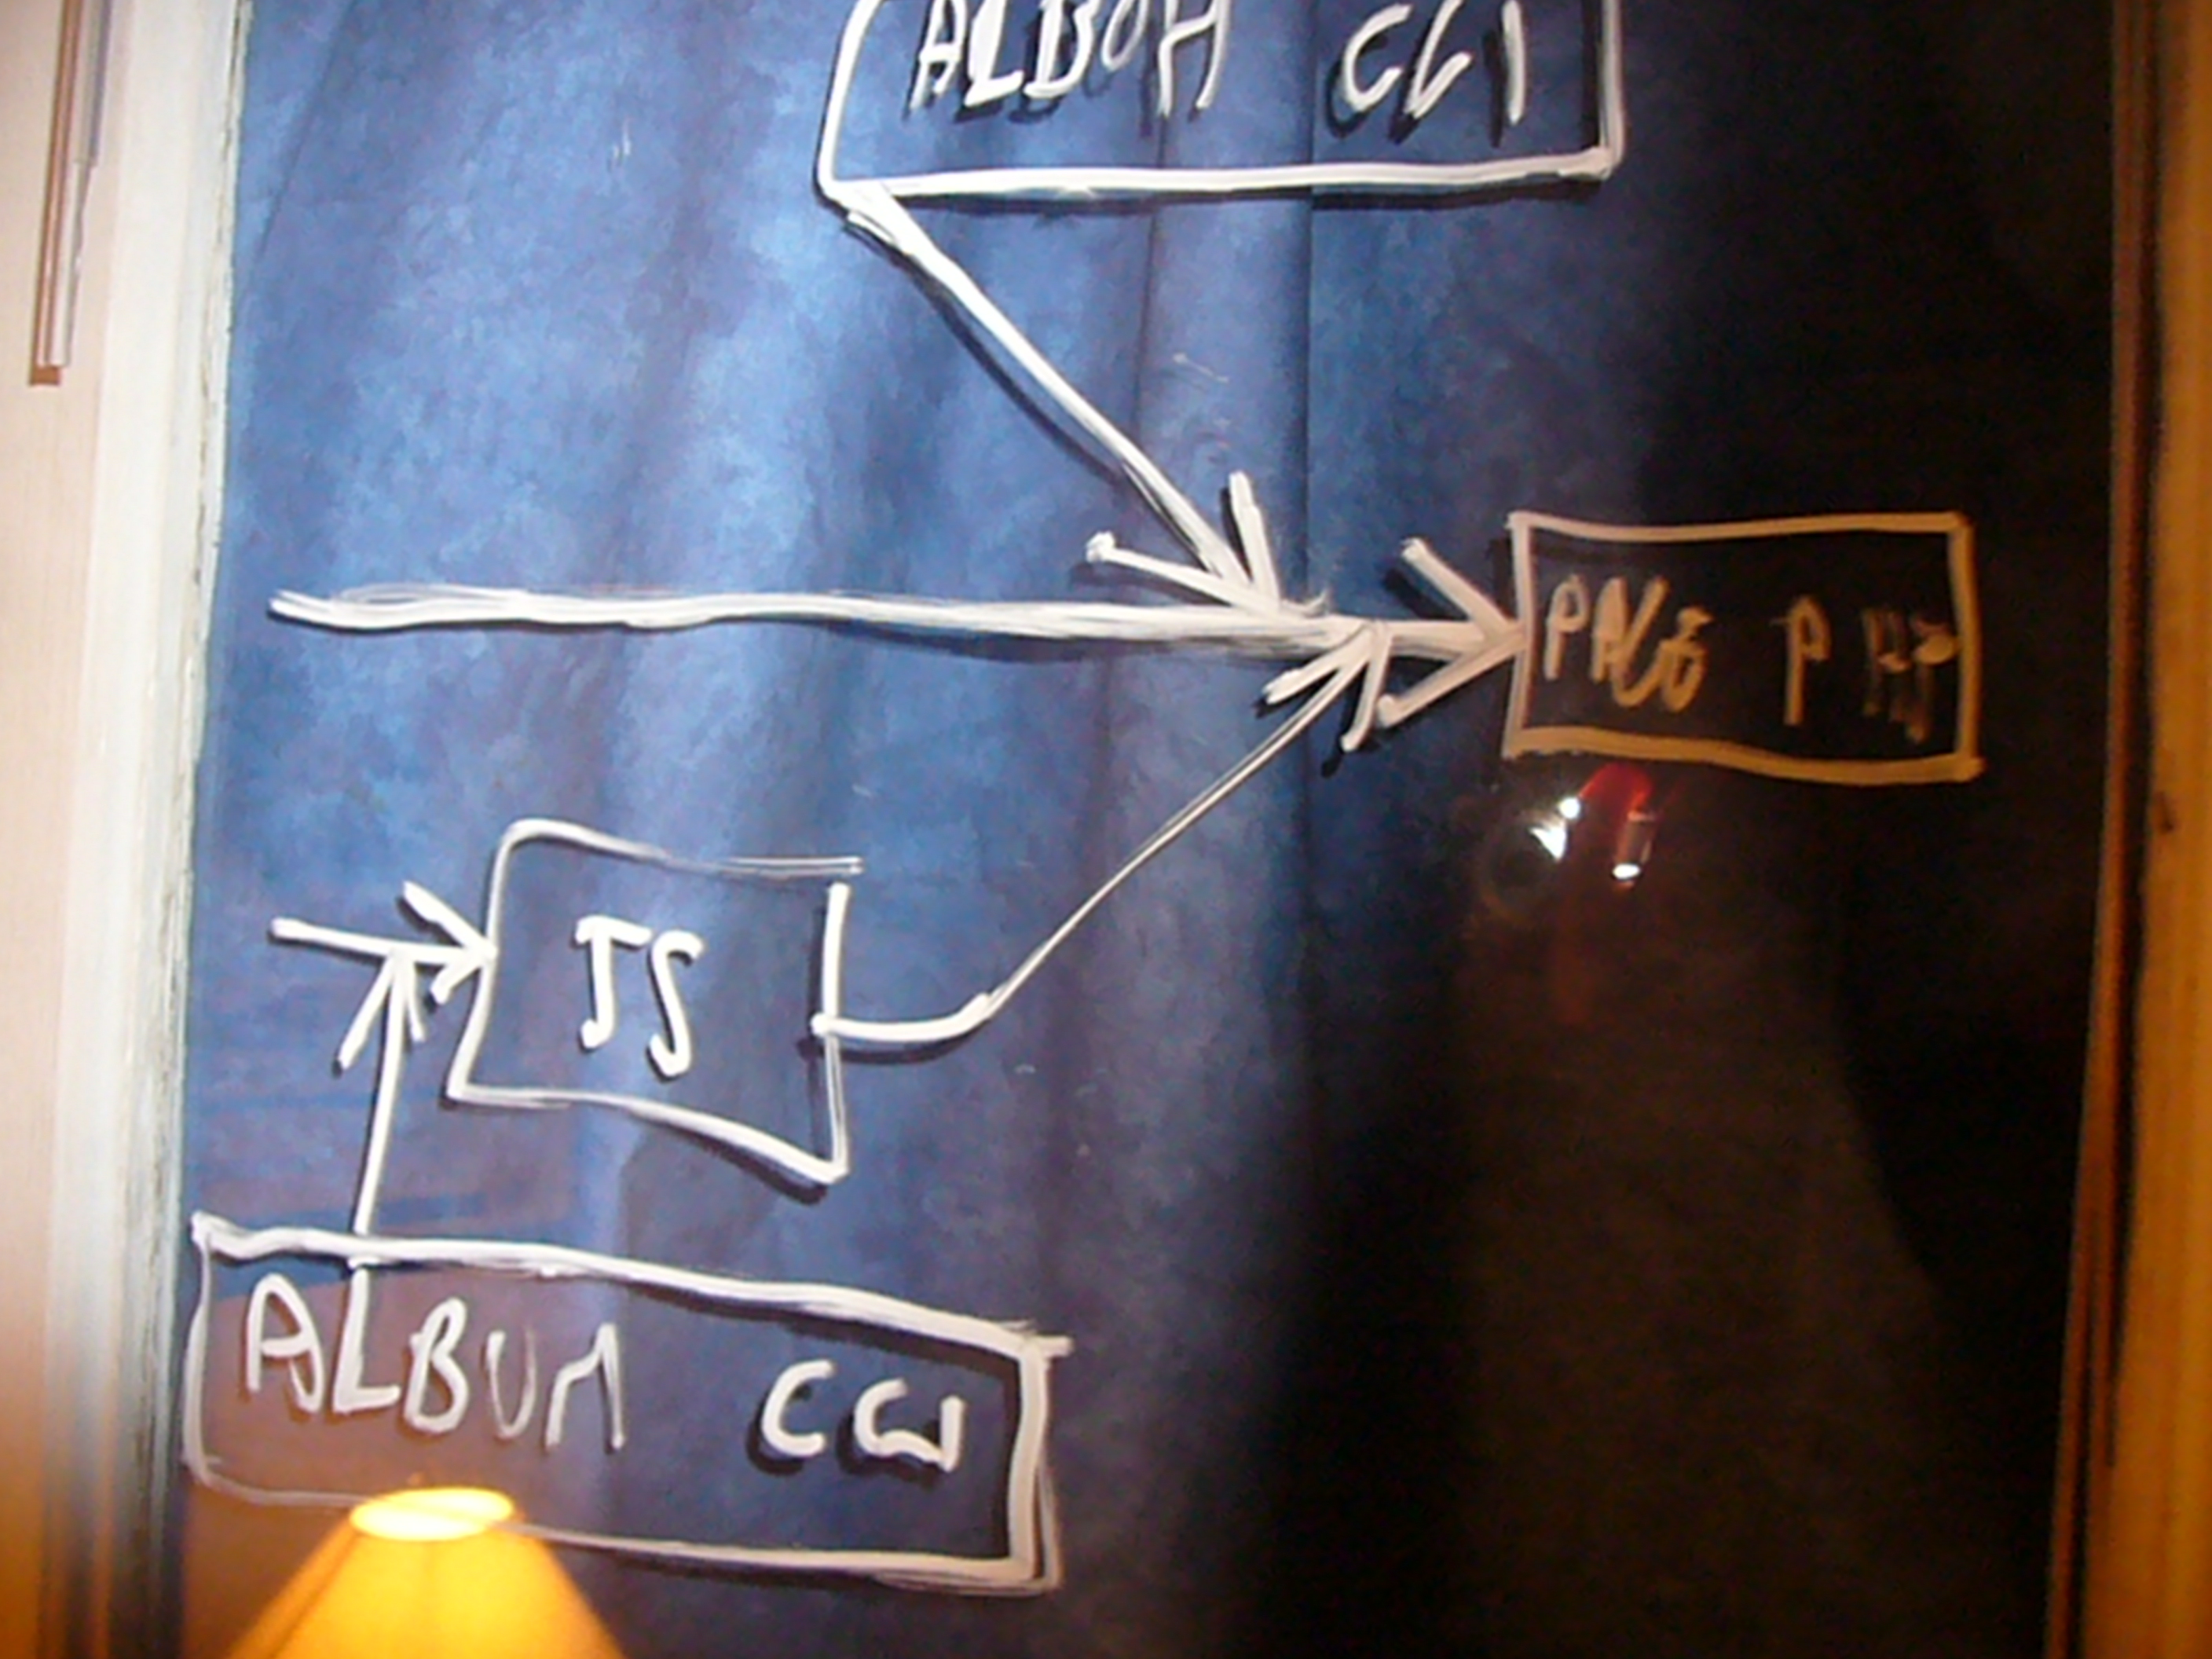 ALBUM CGI
PAGE PHP
JS
ALBUM CGI